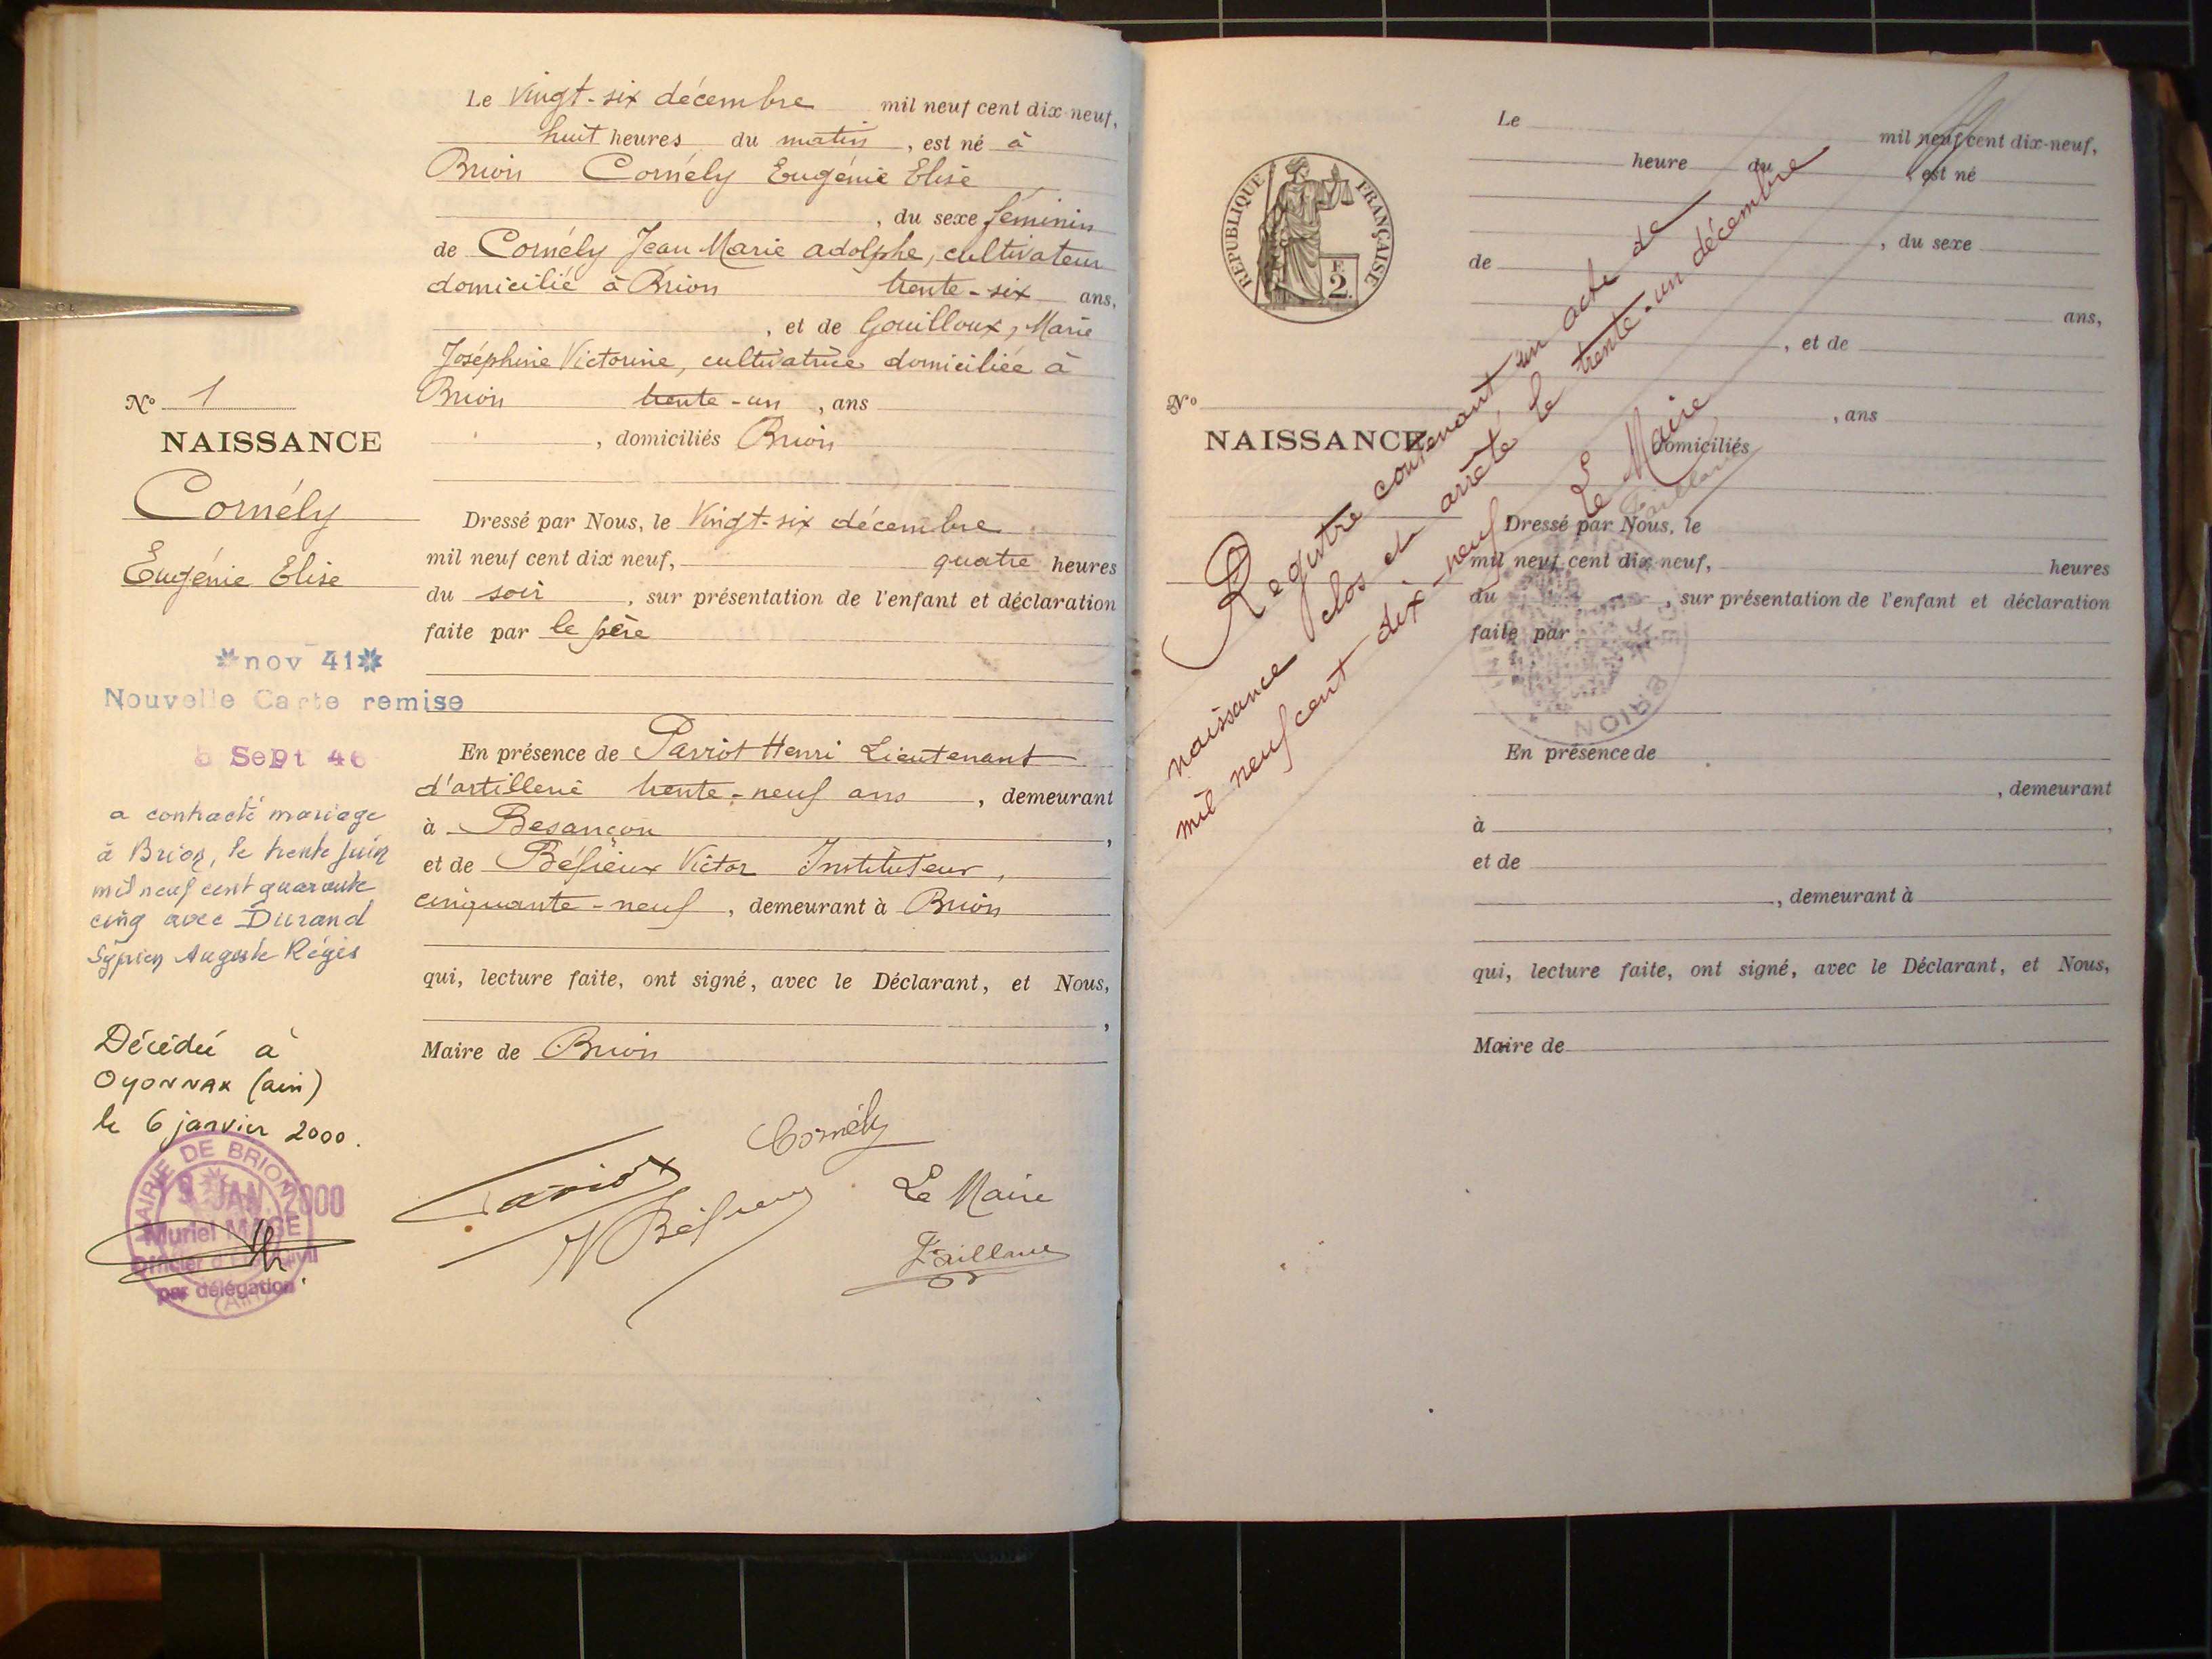 Le vingt-six décembre mil neuf cent dix-neuf,
huit heures du matin, est né à
Brion Cornély Eugénie Elise
, du sexe féminin
de Cornély Jean Marie adolphe, cultivateur
domicilié à Brion trente-six ans,
, et de Gouilloux, Marie
Joséphine Victorine, cultivatrice domiciliée à
Brion trente-un , ans
, domiciliés Brion
N° 1
NAISSANCE
Cornély
Eugénie Elise
Dressé par Nous, le vingt-six décembre
mil neuf cent dix neuf, quatre heures
du soir , sur présentation de l'enfant et déclaration
faite par le père
nov 41
Nouvelle Carte remise
Sept 46
a contracté mariage
à Brion, le trente juin
mil neuf cent quarante
cinq avec Durand
Auguste Régis
En présence de Parriot Henri Lieutenant
d'artillerie trente-neuf ans , demeurant
à Besançon ,
et de Béfieux Victor Instituteur,
cinquante-neuf , demeurant à Brion
qui, lecture faite, ont signé, avec le Déclarant, et Nous,
,
Maire de Brion
Décédée à
OYONNAX (ain)
le 6 janvier 2000.
MAIRIE DE BRION
JAN. 2000
Muriel
Officier d'Etat Civil
par délégation
(Ain)
Cornély
Le Maire
Le mil neuf cent dix-neuf,
heure du , est né
, du sexe
de
ans,
, et de
, ans
domiciliés
REPUBLIQUE FRANÇAISE
E
2
N°
NAISSANCE
Dressé par Nous, le
mil neuf cent dix neuf, heures
du , sur présentation de l'enfant et déclaration
faite par
BRION
En présence de
, demeurant
à ,
et de
, demeurant à
qui, lecture faite, ont signé, avec le Déclarant, et Nous,
Maire de
Registre contenant un acte de
naissance clos et arrêté le trente-un décembre
mil neuf cent dix-neuf
Le Maire